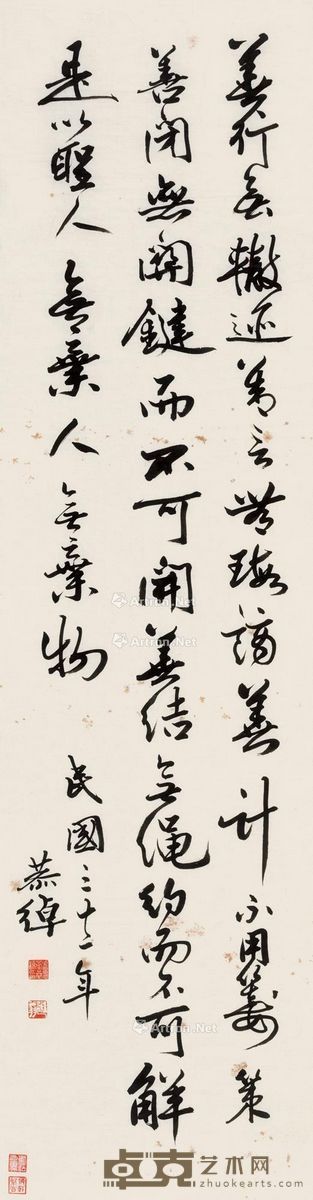 善行無轍迹善言無瑕謫善計不用籌策
善閉無關鍵而不可開善結無繩約而不可解
是以聖人無棄人無棄物
民國三十二年
恭綽
Artron.Net
Artron.Net
Artron.Net
Artron.Net
卓克艺术网
www.zhuokearts.com